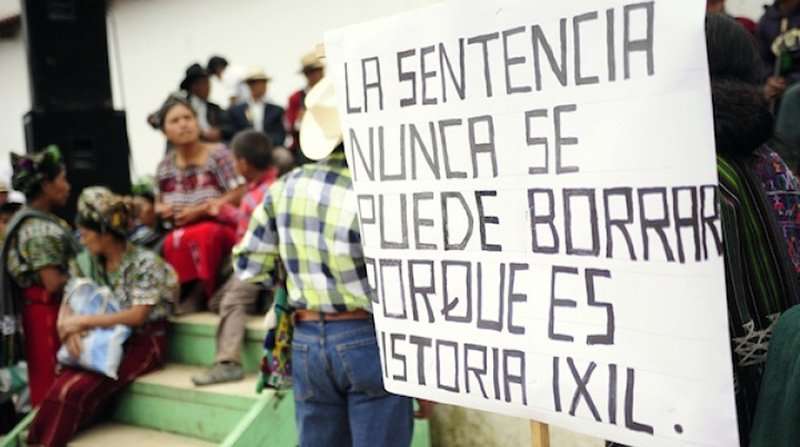 LA SENTENCIA
NUNCA SE
PUEDE BORRAR
PORQUE ES
HISTORIA IXIL.